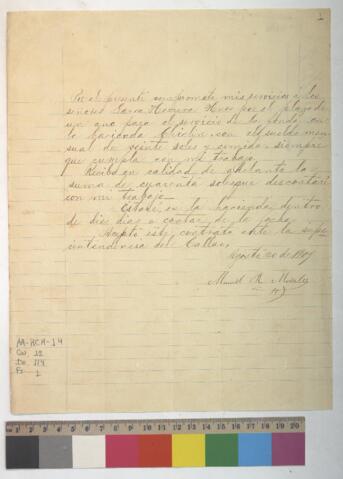 1
Por el presente comprometo mis servicios á los
señores Larco Herrera Hnos por el plazo de
un año para el servicio de la fonda en
la hacienda Chiclin con el sueldo men
sual de veinte soles y comida siempre
que cumpla con mi trabajo.
Recibo en calidad de adelanto la
suma de cuarenta soles que descontaré
con mi trabajo
Estaré en la hacienda dentro
de diez dias a contar de la fecha
Acepto este contrato ante la supe
intendencia del Callao,
Agosto 20 de 1907
Manuel R.
AA-HCH-14
Cw. 12
Do. 114
Fs. 1
1 2 3 4 5 6 7 8 9 10 11 12 13 14 15 16 17 18 19 20